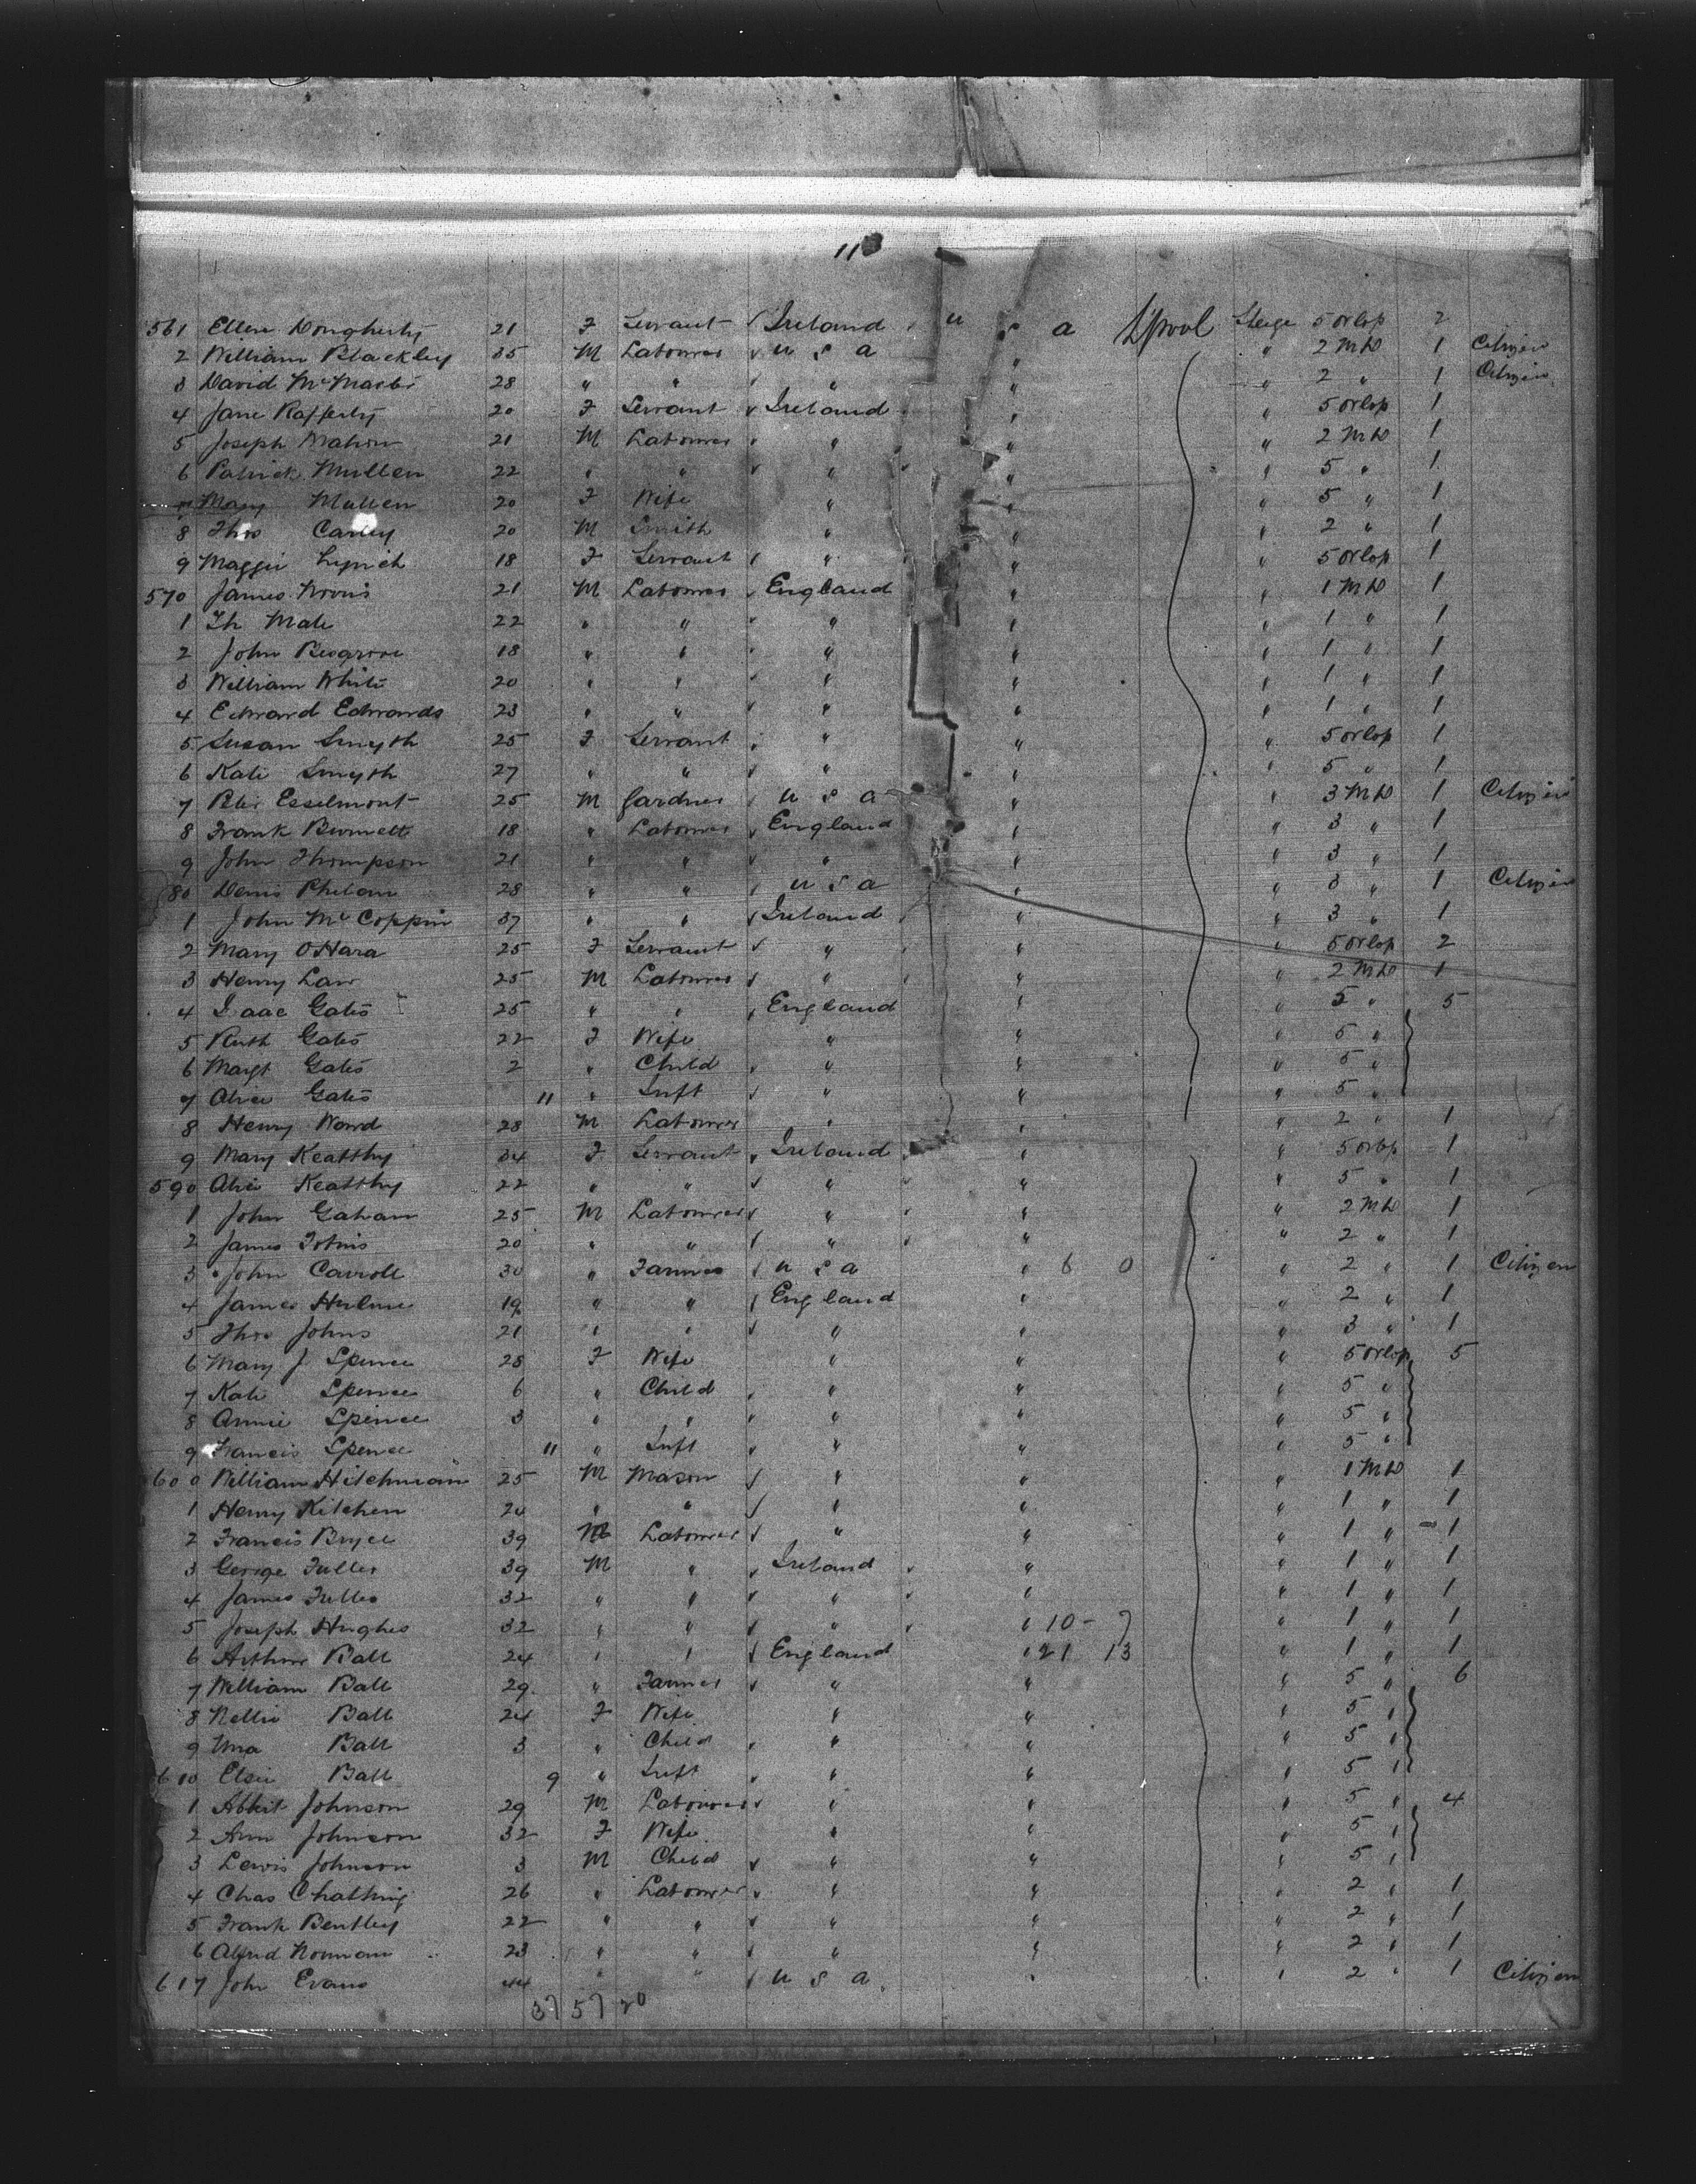 11
561 Ellen Dougherty 21 F Servant Ireland U S A L'pool Steige 5 orlop 2
2 William Blackley 35 M Labourer U S A " 2 M D 1 Citizen
3 David McMaster 28 " " " " " 2 " 1 Citizen
4 Jane Rafferty 20 F Servant Ireland " " 5 orlop 1
5 Joseph Mahon 21 M Labourer " " " 2 M D 1
6 Patrick Mullen 22 " " " " " 5 " 1
7 Mary Mullen 20 F Wife " " " 5 " 1
8 Thos Carley 20 M Smith " " " 2 " 1
9 Maggie Lynch 18 F Servant " " " 5 orlop 1
570 James Norris 21 M Labourer England " " 1 M D 1
1 Th Male 22 " " " " " 1 " 1
2 John 18 " " " " " 1 " 1
3 William White 20 " " " " " 1 " 1
4 Edward Edwards 23 " " " " " 1 " 1
5 Susan Smyth 25 F Servant " " " 5 orlop 1
6 Kate Smyth 27 " " " " " 5 " 1
7 Peter Esselmont 25 M Gardner U S A " " 3 M D 1 Citizen
8 Frank Burnett 18 " Labourer England " " 3 " 1
9 John Thompson 21 " " " " " 3 " 1
80 Denis Phelan 28 " " U S A " " 3 " 1 Citizen
1 John McCoppin 37 " " Ireland " " 3 " 1
2 Mary OHara 25 F Servant " " " 5 orlop 2
3 Henry Law 25 M Labourer " " " 2 M D 1
4 Isaac Gates 25 " " England " " 5 " 5
5 Ruth Gates 22 F Wife " " " 5 "
6 Margt Gates 2 " Child " " " 5 "
7 Alice Gates 11 " Inft " " " 5 "
8 Henry Ward 28 M Labourer " " " 2 " 1
9 Mary Keatthy 34 F Servant Ireland " " 5 orlop 1
590 Alice Keatthy 22 " " " " " 5 " 1
1 John Gahan 25 M Labourer " " " 2 M D 1
2 James Tobins 20 " " " " " 2 " 1
3 John Carroll 30 " Farmer U S A " 6 0 " 2 " 1 Citizen
4 James Hulme 19 " " England " " 2 " 1
5 Thos Johns 21 " " " " " 3 " 1
6 Mary J Spence 28 F Wife " " " 5 orlop 5
7 Kate Spence 6 " Child " " " 5 "
8 Annie Spence 3 " " " " " 5 "
9 Francis Spence 11 " Inft " " " 5 "
600 William Hitchman 25 M Mason " " " 1 M D 1
1 Henry Kitchen 24 " " " " " 1 " 1
2 Francis Bryce 39 M Labourer " " " 1 " 1
3 George Fuller 39 M " Ireland " " 1 " 1
4 James Fuller 32 " " " " " 1 " 1
5 Joseph Hughes 32 " " " " 10 - 7 " 1 " 1
6 Arthur Ball 24 " " England " 21 13 " 1 " 1
7 William Ball 29 " Farmer " " " 5 " 6
8 Nellie Ball 24 F Wife " " " 5 "
9 Una Ball 3 " Child " " " 5 "
610 Elsie Ball 9 " Inft " " " 5 "
1 Johnson 29 M Labourer " " " 5 " 4
2 Ann Johnson 32 F Wife " " " 5 "
3 Lewis Johnson 3 M Child " " " 5 "
4 Chas Chatting 26 " Labourer " " " 2 " 1
5 Frank Bentley 22 " " " " " 2 " 1
6 Alfred Norman 23 " " " " " 2 " 1
617 John Evans 44 " " U S A " " 2 " 1 Citizen
37 57 20